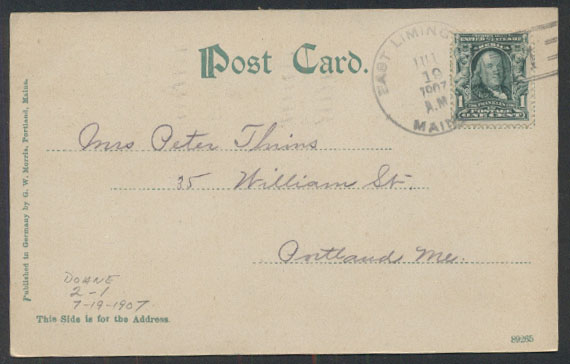 Post Card.
EAST LIMING
JUL
19
1907
A.M.
MAIN
UNITED STATES OF
AMERICA
1 FRANKLIN 1
POSTAGE
ONE CENT
Mrs Peter Thins
35 William St.
Portland Me.
Published in Germany by G. W. Morris, Portland, Maine.
DOANE
2-1
7-19-1907
This Side is for the Address.
89265